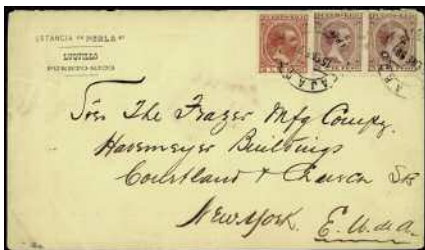 ESTANCIA "PERLA"
LUQUILLO
PUERTO-RICO
CAJA
Sres The Frazer Mfg Compy.
Havemeyer Buildings
Courtland & Church Sts
New York. E. U. de A.